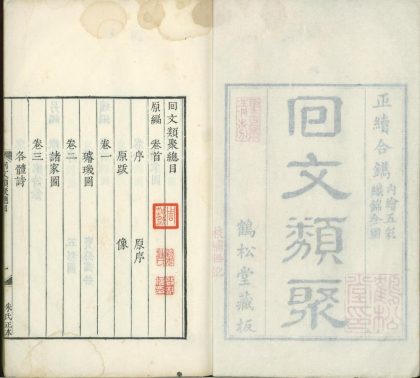 正續合鐫
內繪五彩
璇錦全圖
回文類聚
鶴松堂藏板
回文類聚總目
原編 卷首
序 原序
原跋 像
卷一
璿璣圖
卷二
諸家圖
卷三
各體詩
一
朱氏正本